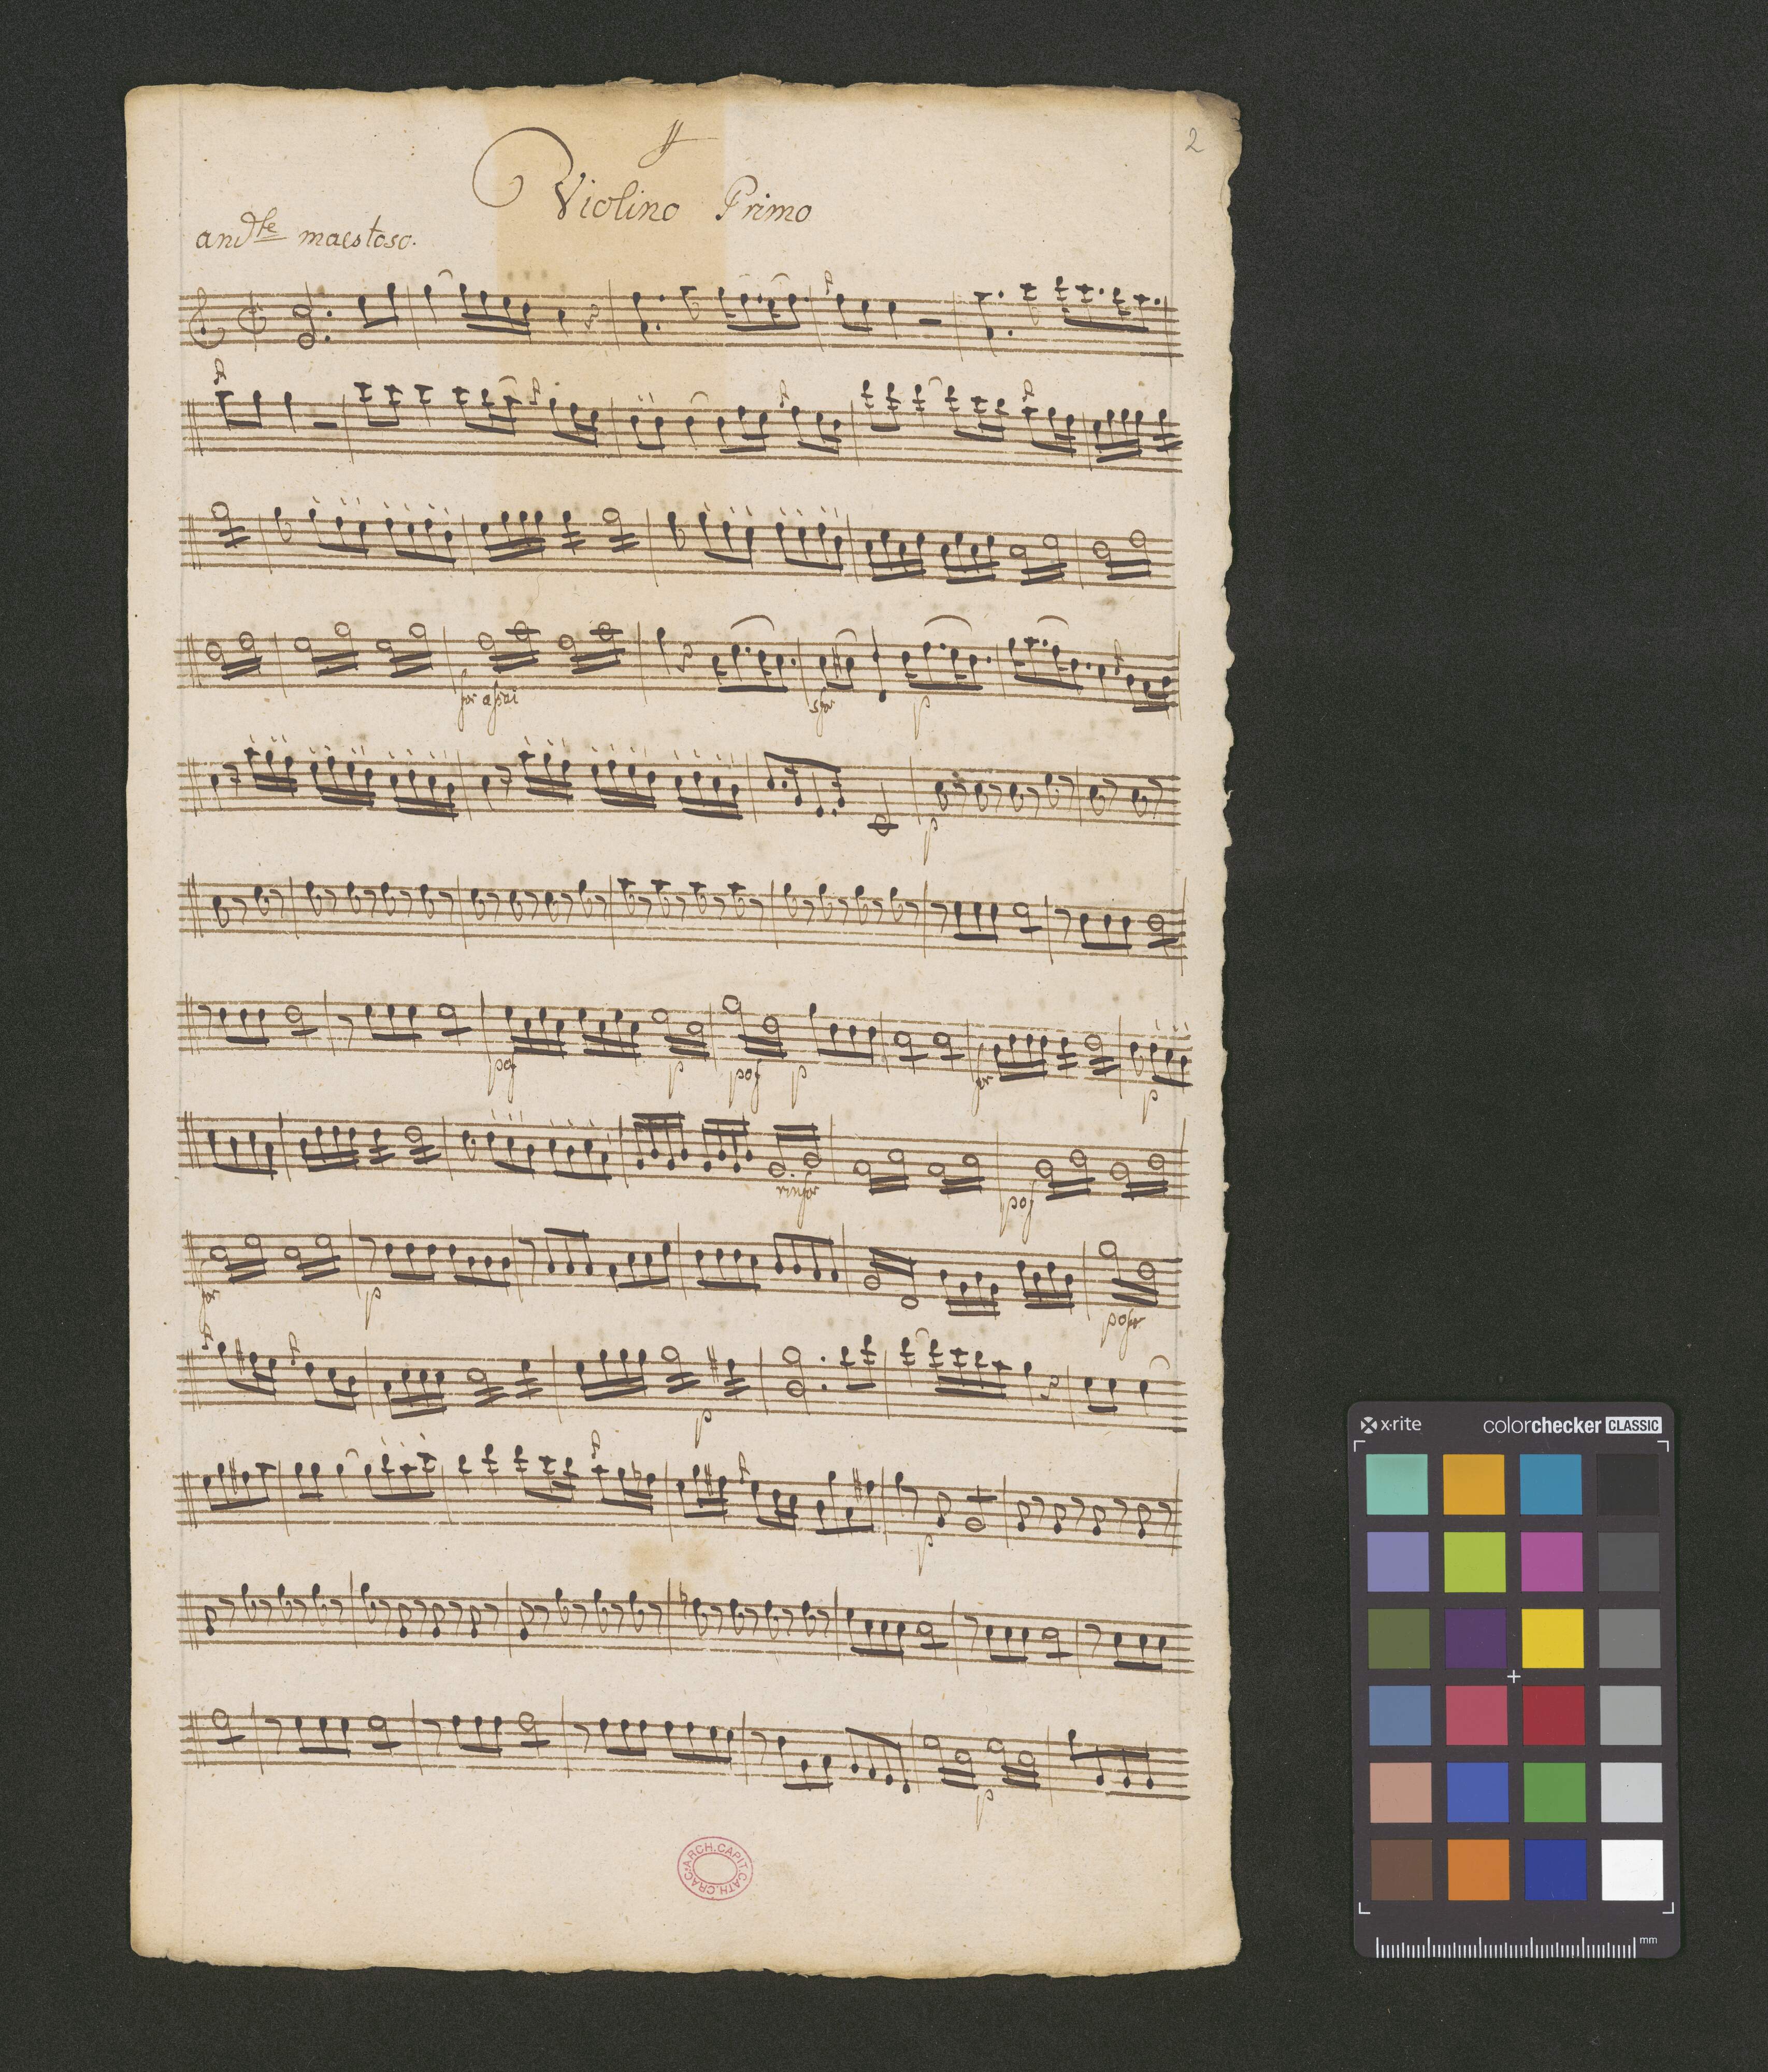 2
Violino Primo
andte maestoso.
for assai sfor p
p
pof p pof p for p
rinfor pof
for p pofor
p
p
p
ARCH.CAPIT.CATH.CRAC.
x·rite colorchecker CLASSIC
mm